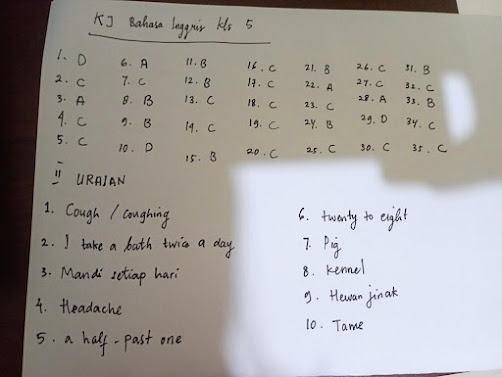 KJ Bahasa Inggris kls 5
1. D 6. A 11. B 16. C 21. B 26. C 31. B
2. C 7. C 12. B 17. C 22. A 27. C 32. C
3. A 8. B 13. C 18. C 23. C 28. A 33. B
4. C 9. B 14. C 19. C 24. B 29. D 34. C
5. C 10. D 15. B 20. C 25. C 30. C 35. C
II URAIAN
1. Cough / coughing
2. I take a bath twice a day
3. Mandi setiap hari
4. Headache
5. a half - past one
6. twenty to eight
7. Pig
8. kennel
9. Hewan jinak
10. Tame